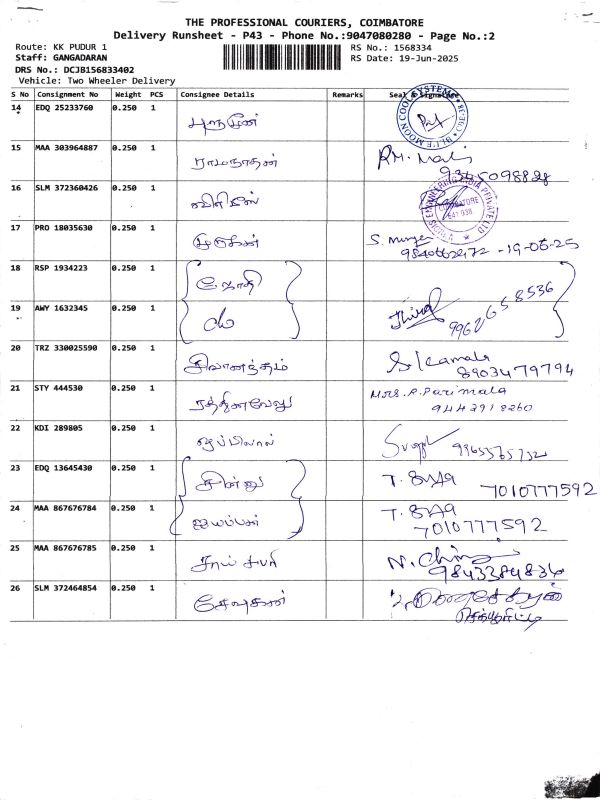 THE PROFESSIONAL COURIERS, COIMBATORE
Delivery Runsheet - P43 - Phone No.:9047080280 - Page No.:2
Route: KK PUDUR 1
Staff: GANGADARAN
DRS No.: DCJB156833402
Vehicle: Two Wheeler Delivery
RS No.: 1568334
RS Date: 19-Jun-2025
S No Consignment No Weight PCS Consignee Details Remarks Seal & Signature
14 EDQ 25233760 0.250 1
BLUE MOON COOL SYSTEMS
15 MAA 303964887 0.250 1 ராமநாதன்
9345098828
16 SLM 372360426 0.250 1
COIMBATORE
641 038
17 PRO 18035630 0.250 1 முருகன் S. Murugan
19-06-25
18 RSP 1934223 0.250 1 ஜோதி
19 AWY 1632345 0.250 1
9962658536
20 TRZ 330025590 0.250 1 சிவானந்தம் Kamala
8903479794
21 STY 444530 0.250 1 ரத்தினவேலு Mrs. P. Parimala
9442918260
22 KDI 289805 0.250 1
23 EDQ 13645430 0.250 1 7010777592
24 MAA 867676784 0.250 1 ஐயப்பன்
7010777592
25 MAA 867676785 0.250 1 சாய் சபரி
9843384834
26 SLM 372464854 0.250 1 சேவுகன்